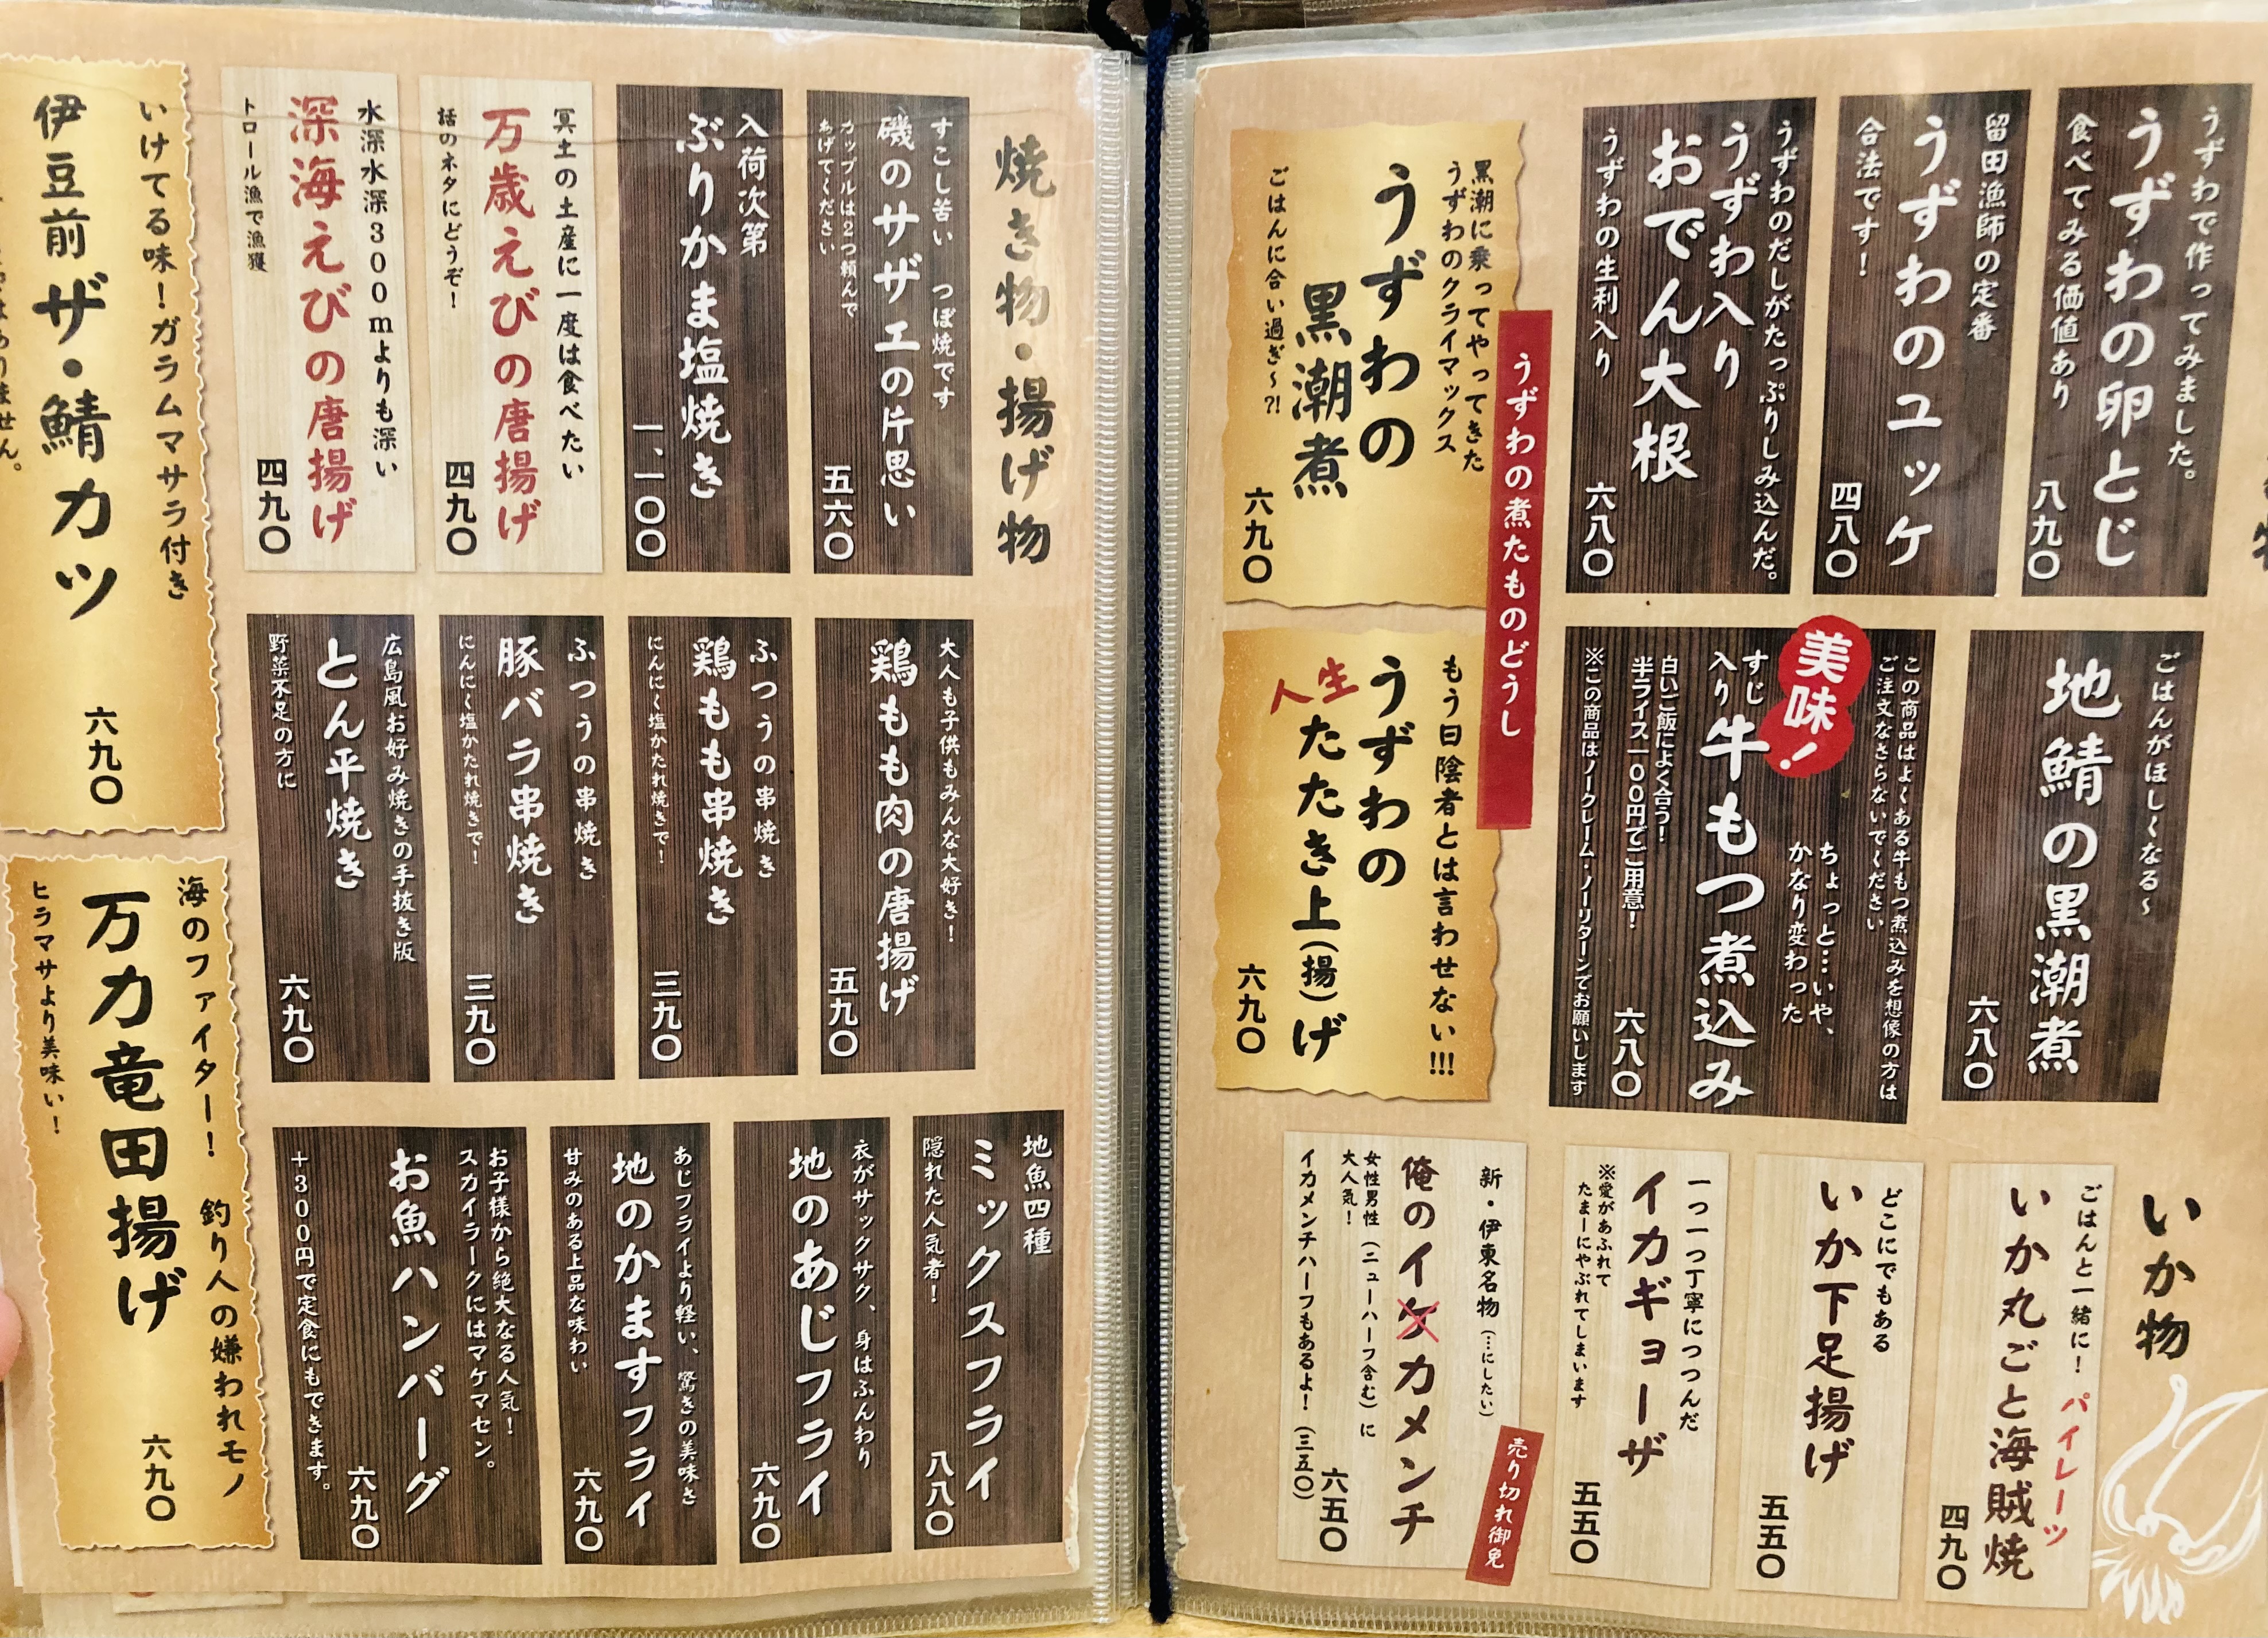 うずわで作ってみました。
うずわの卵とじ
食べてみる価値あり
八九〇
留田漁師の定番
うずわのユッケ
合法です！
四八〇
うずわのだしがたっぷりしみ込んだ。
うずわ入り
おでん大根
うずわの生利入り
六八〇
黒潮に乗ってやってきた
うずわのクライマックス
うずわの
黒潮煮
ごはんに合い過ぎ～?!
六九〇
うずわの煮たものどうし
ごはんがほしくなる～
地鯖の黒潮煮
六八〇
この商品はよくある牛もつ煮込みを想像の方は
ご注文なさらないでください
美味！
ちょっと…いや、
かなり変わった
すじ
入り
牛もつ煮込み
白いご飯によく合う！
半ライス一〇〇円でご用意！
六八〇
※この商品はノークレーム・ノーリターンでお願いします
もう日陰者とは言わせない!!!
うずわの
人生
たたき上(揚)げ
六九〇
いか物
ごはんと一緒に！
パイレーツ
いか丸ごと海賊焼
四九〇
どこにでもある
いか下足揚げ
五五〇
一つ一つ丁寧につつんだ
イカギョーザ
※愛があふれて
たまーにやぶれてしまいます
五五〇
新・伊東名物(…にしたい)
俺のイケカメンチ
女性男性(ニューハーフ含む)に
大人気！
イカメンチハーフもあるよ！(三五〇)
六五〇
売り切れ御免
焼き物・揚げ物
すこし苦い つぼ焼です
磯のサザエの片思い
カップルは2つ頼んで
あげてください
五六〇
入荷次第
ぶりかま塩焼き
一、一〇〇
冥土の土産に一度は食べたい
万歳えびの唐揚げ
話のネタにどうぞ！
四九〇
水深水深300mよりも深い
深海えびの唐揚げ
トロール漁で漁獲
四九〇
いけてる味！ガラムマサラ付き
伊豆前ザ・鯖カツ
六九〇
大人も子供もみんな大好き！
鶏もも肉の唐揚げ
五九〇
ふつうの串焼き
鶏もも串焼き
にんにく塩かたれ焼きで！
三九〇
ふつうの串焼き
豚バラ串焼き
にんにく塩かたれ焼きで！
三九〇
広島風お好み焼きの手抜き版
とん平焼き
野菜不足の方に
六九〇
海のファイター！ 釣り人の嫌われモノ
万力竜田揚げ
ヒラマサより美味い！
六九〇
地魚四種
ミックスフライ
隠れた人気者！
八八〇
衣がサックサク、身はふんわり
地のあじフライ
六九〇
あじフライより軽い、驚きの美味さ
地のかますフライ
甘みのある上品な味わい
六九〇
お子様から絶大なる人気！
スカイラークにはマケマセン。
お魚ハンバーグ
六九〇
+300円で定食にもできます。